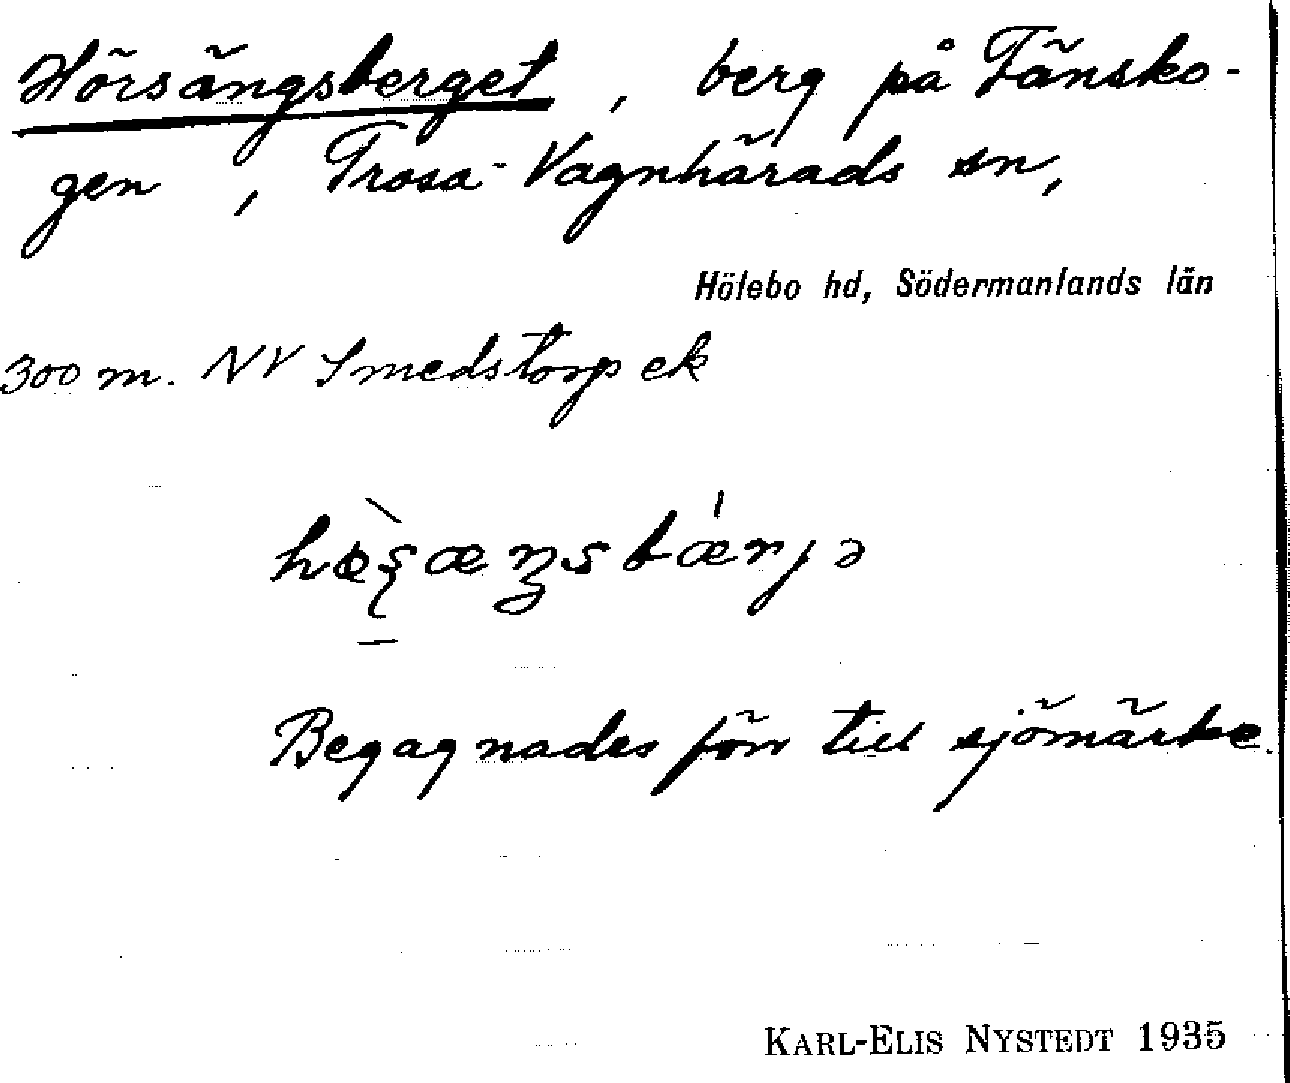 Hörsängsberget, berg på Tänsko-
gen, Trosa-Vagnhärads sn,
Hölebo hd, Södermanlands län
300 m. NV Smedstorp ek
Begagnades förr till sjömärke.
KARL-ELIS NYSTEDT 1935